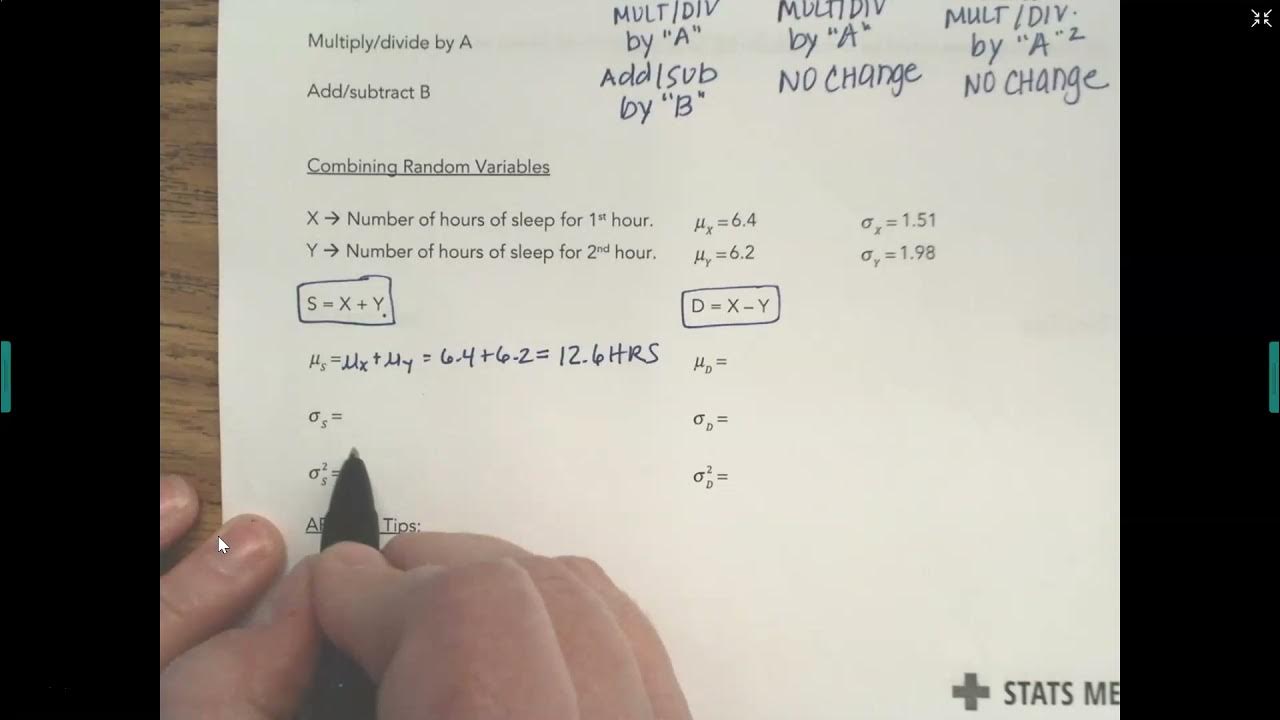 MULT/DIV MULT/DIV MULT/DIV.
Multiply/divide by A by "A" by "A" by "A"²
Add/subtract B Add/sub NO CHANGE NO CHANGE
by "B"
Combining Random Variables
X → Number of hours of sleep for 1st hour. μx = 6.4 σx = 1.51
Y → Number of hours of sleep for 2nd hour. μY = 6.2 σY = 1.98
S = X + Y. D = X – Y
μS = μx + μy = 6.4 + 6.2 = 12.6 HRS μD =
σS = σD =
σ²S = σ²D =
Tips:
STATS ME